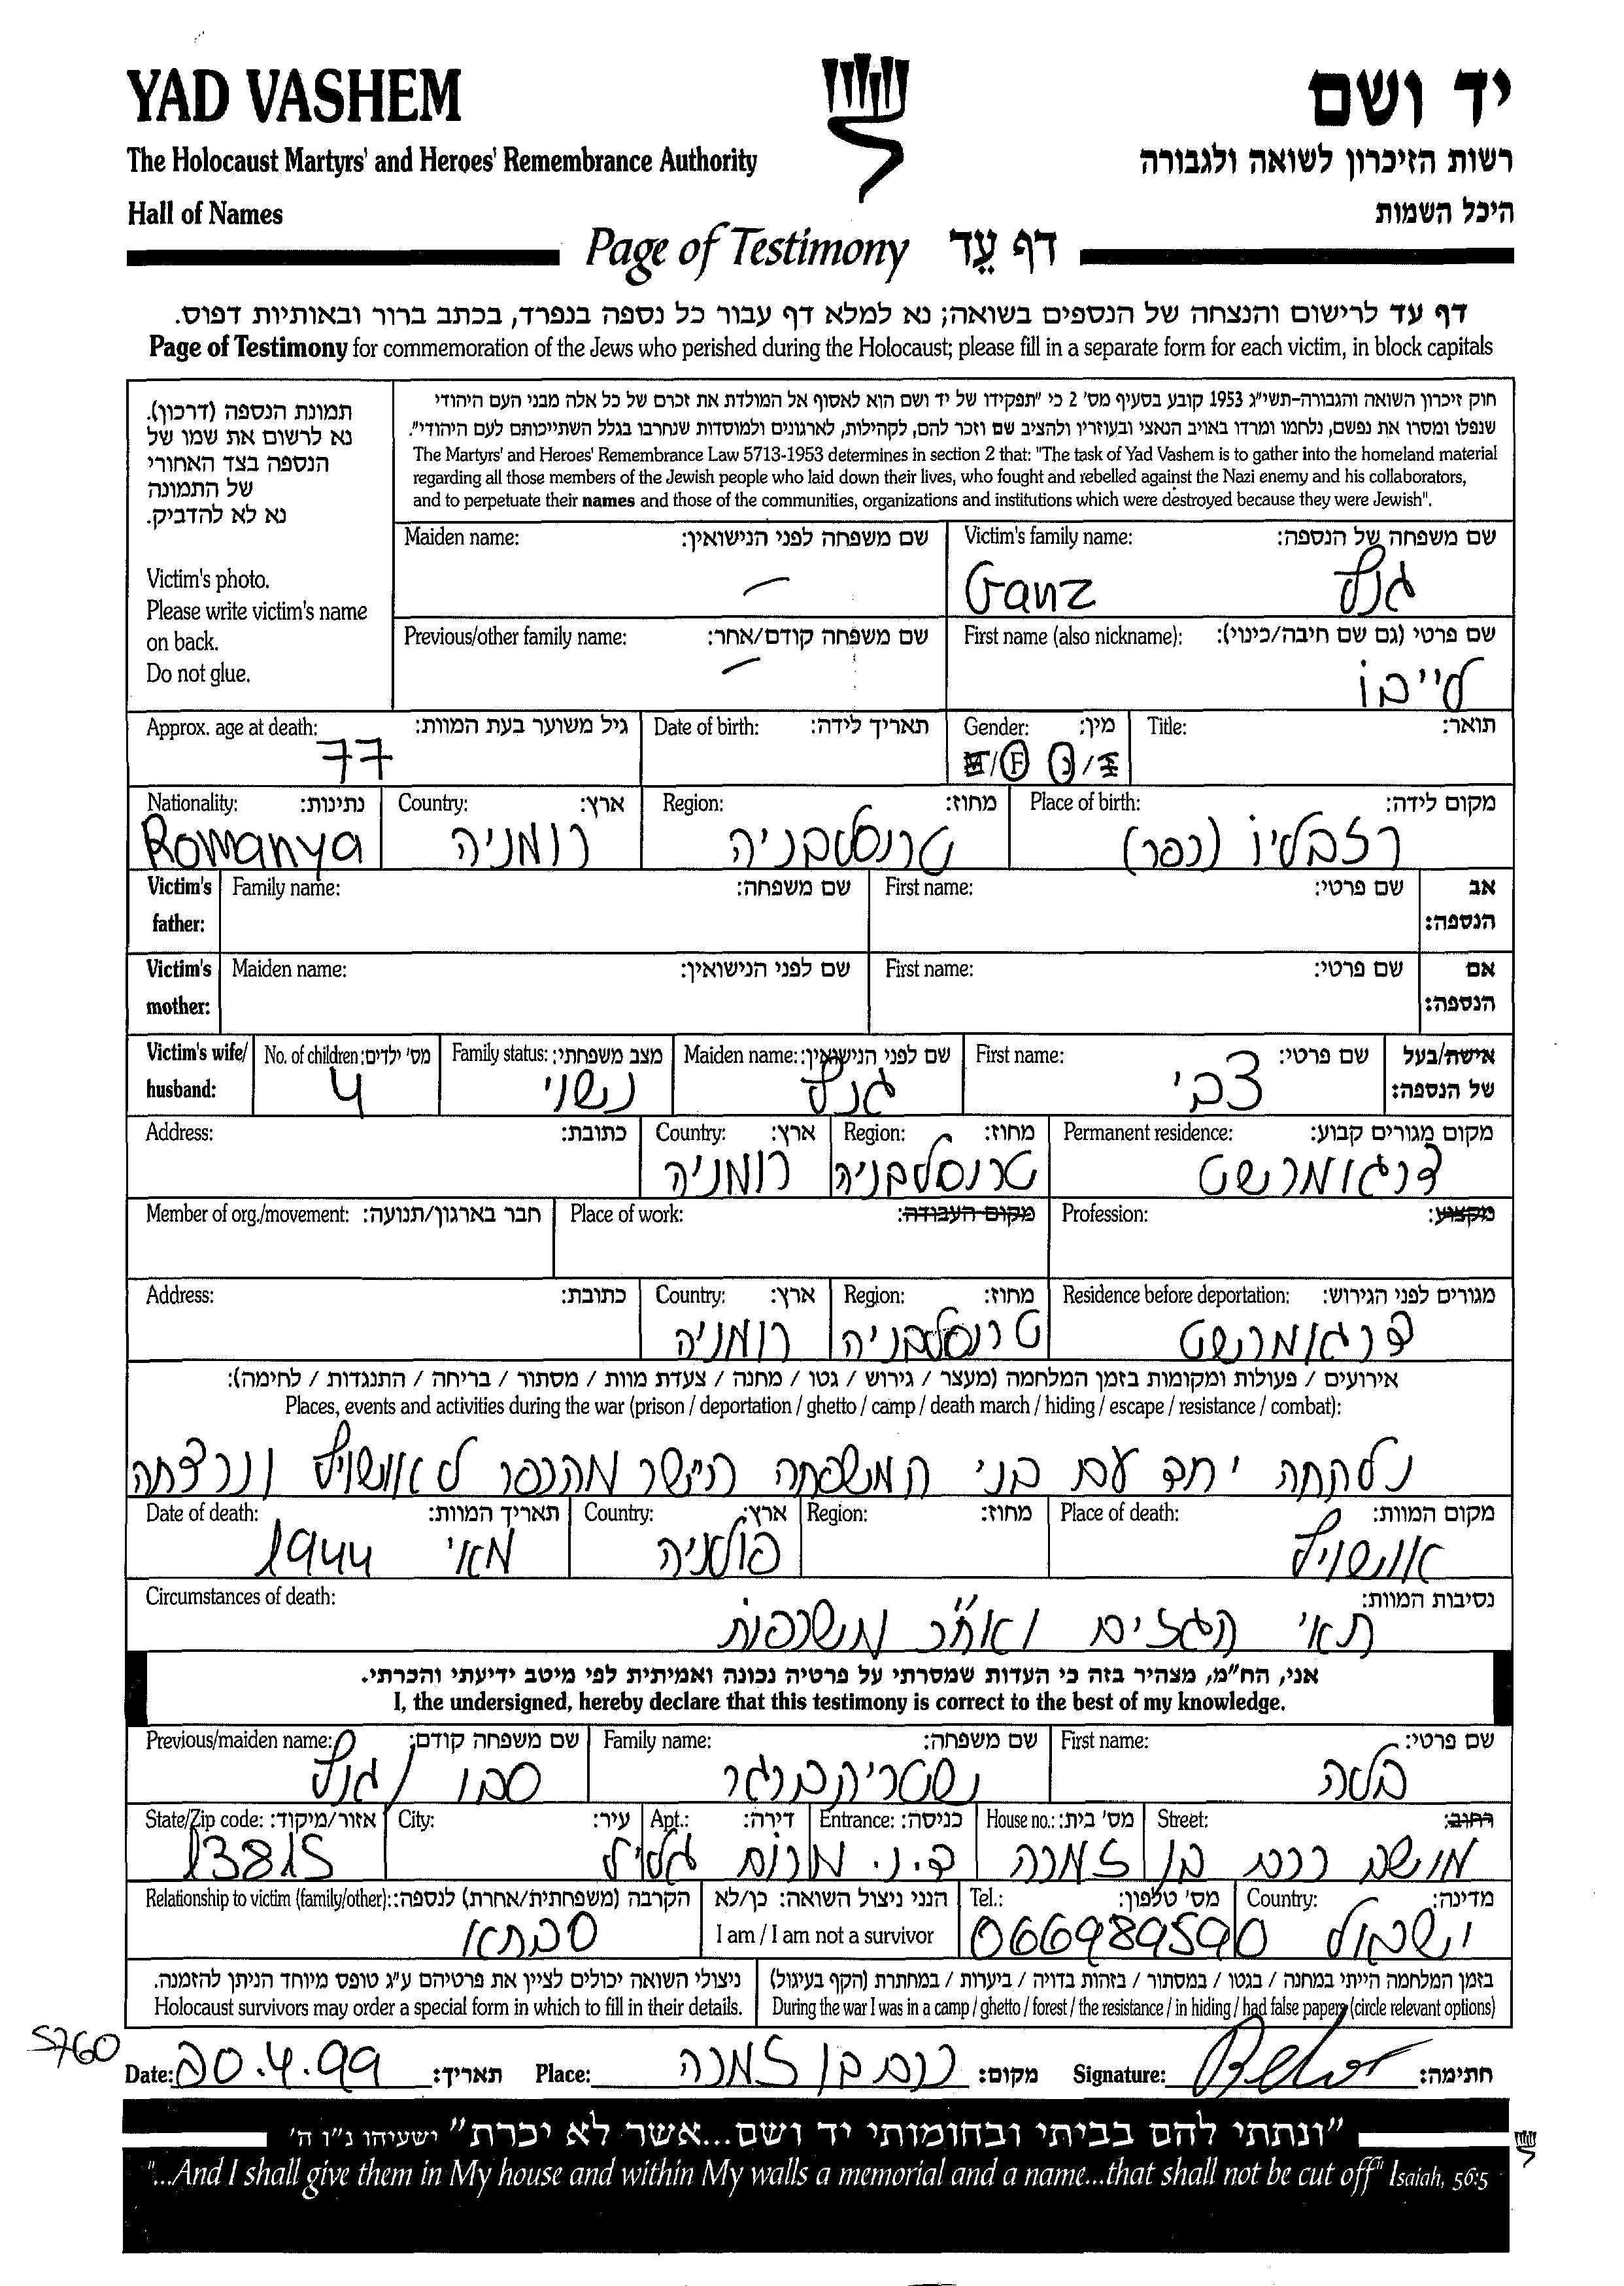 YAD VASHEM
יד ושם
The Holocaust Martyrs' and Heroes' Remembrance Authority
רשות הזיכרון לשואה ולגבורה
Hall of Names
היכל השמות
Page of Testimony דף עֵד
דף עד לרישום והנצחה של הנספים בשואה; נא למלא דף עבור כל נספה בנפרד, בכתב ברור ובאותיות דפוס.
Page of Testimony for commemoration of the Jews who perished during the Holocaust; please fill in a separate form for each victim, in block capitals
תמונת הנספה (דרכון).
נא לרשום את שמו של
הנספה בצד האחורי
של התמונה
נא לא להדביק.
Victim's photo.
Please write victim's name
on back.
Do not glue.
חוק זיכרון השואה והגבורה-תשי"ג 1953 קובע בסעיף מס' 2 כי "תפקידו של יד ושם הוא לאסוף אל המולדת את זכרם של כל אלה מבני העם היהודי
שנפלו ומסרו את נפשם, נלחמו ומרדו באויב הנאצי ובעוזריו ולהציב שם וזכר להם, לקהילות, לארגונים ולמוסדות שנחרבו בגלל השתייכותם לעם היהודי".
The Martyrs' and Heroes' Remembrance Law 5713-1953 determines in section 2 that: "The task of Yad Vashem is to gather into the homeland material
regarding all those members of the Jewish people who laid down their lives, who fought and rebelled against the Nazi enemy and his collaborators,
and to perpetuate their names and those of the communities, organizations and institutions which were destroyed because they were Jewish".
Maiden name: שם משפחה לפני הנישואין:
Victim's family name: שם משפחה של הנספה:
Ganz גנץ
Previous/other family name: שם משפחה קודם/אחר:
First name (also nickname): שם פרטי (גם שם חיבה/כינוי):
לייבו
Approx. age at death: גיל משוער בעת המוות:
77
Date of birth: תאריך לידה:
Gender: מין:
M/F נ/ז
Title: תואר:
Nationality: נתינות:
Romanya
Country: ארץ:
רומניה
Region: מחוז:
טרנסלבניה
Place of birth: מקום לידה:
רזבליו (כפר)
Victim's father: Family name: שם משפחה: First name: שם פרטי: אב הנספה:
Victim's mother: Maiden name: שם לפני הנישואין: First name: שם פרטי: אם הנספה:
Victim's wife/ husband: No. of children: מס' ילדים: Family status: מצב משפחתי: Maiden name: שם לפני הנישואין: First name: שם פרטי: אישה/בעל של הנספה:
4 נשוי גנץ צבי
Address: כתובת: Country: ארץ: Region: מחוז: Permanent residence: מקום מגורים קבוע:
רומניה טרנסלבניה דרגומרשט
Member of org./movement: חבר בארגון/תנועה: Place of work: מקום העבודה: Profession: מקצוע:
Address: כתובת: Country: ארץ: Region: מחוז: Residence before deportation: מגורים לפני הגירוש:
רומניה טרנסלבניה דרגומרשט
אירועים / פעולות ומקומות בזמן המלחמה (מעצר / גירוש / גטו / מחנה / צעדת מוות / מסתור / בריחה / התנגדות / לחימה):
Places, events and activities during the war (prison / deportation / ghetto / camp / death march / hiding / escape / resistance / combat):
נלקחה יחד עם בני המשפחה הישר מהכפר לאוושויץ ונרצחה
Date of death: תאריך המוות: Country: ארץ: Region: מחוז: Place of death: מקום המוות:
מאי 1944 פולניה אוושויץ
Circumstances of death: נסיבות המוות:
תאי הגזים ואח"כ משרפות
אני, הח"מ, מצהיר בזה כי העדות שמסרתי על פרטיה נכונה ואמיתית לפי מיטב ידיעתי והכרתי.
I, the undersigned, hereby declare that this testimony is correct to the best of my knowledge.
Previous/maiden name: שם משפחה קודם: Family name: שם משפחה: First name: שם פרטי:
סבו / גנץ שטריקברגר בלה
State/Zip code: אזור/מיקוד: City: עיר: Apt.: דירה: Entrance: כניסה: House no.: מס' בית: Street: רחוב:
מושב כרם בן זמרה ד.נ. מרום גליל 13815
Relationship to victim (family/other): הקרבה (משפחתית/אחרת) לנספה: הנני ניצול השואה: כן/לא Tel.: מס' טלפון: Country: מדינה:
סבתא I am / I am not a survivor 066989590 ישראל
ניצולי השואה יכולים לציין את פרטיהם ע"ג טופס מיוחד הניתן להזמנה.
Holocaust survivors may order a special form in which to fill in their details.
בזמן המלחמה הייתי במחנה / בגטו / במסתור / בזהות בדויה / ביערות / במחתרת (הקף בעיגול)
During the war I was in a camp / ghetto / forest / the resistance / in hiding / had false papers (circle relevant options)
5760
Date: 20.4.99 תאריך: Place: כרם בן זמרה מקום: Signature: חתימה:
"ונתתי להם בביתי ובחומותי יד ושם...אשר לא יכרת" ישעיהו נ"ו ה'
"...And I shall give them in My house and within My walls a memorial and a name...that shall not be cut off" Isaiah, 56:5